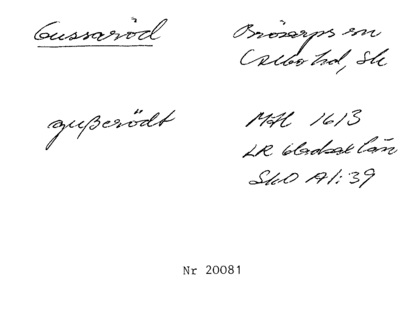 Gussaröd
Brösarps sn
Albo hd, Sk
gußerödt
MH 1613
LR
län
SkO A1:39
Nr 20081